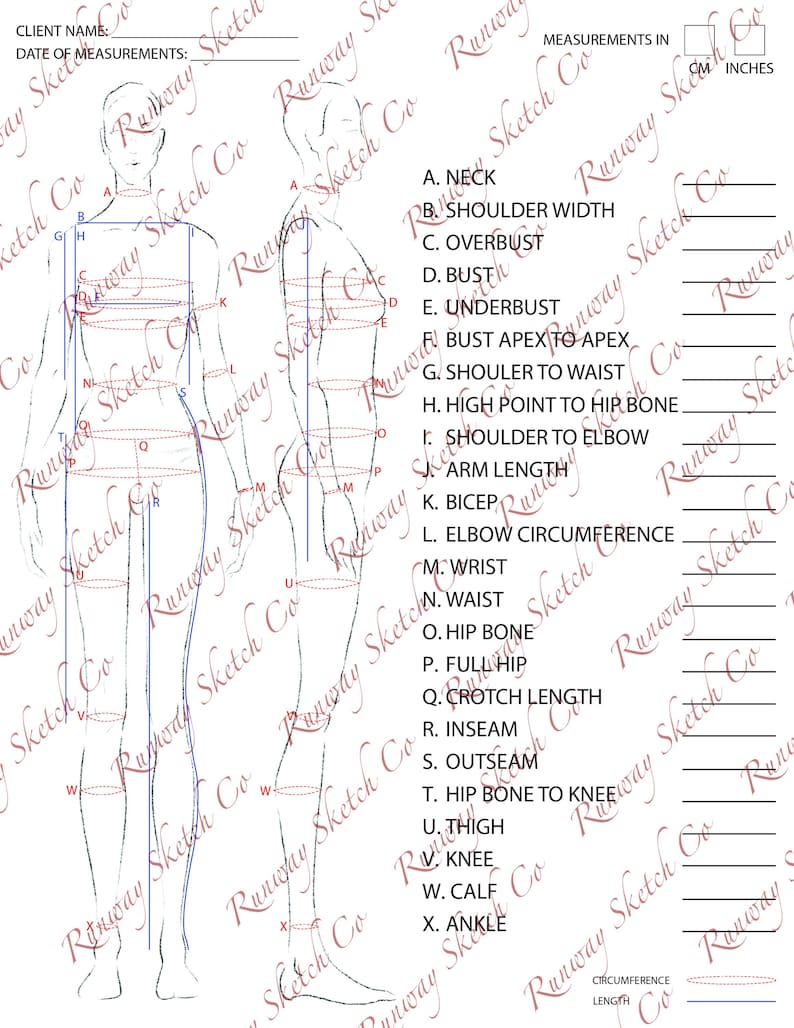 CLIENT NAME: ______________________
DATE OF MEASUREMENTS: _____________
MEASUREMENTS IN
CM INCHES
A. NECK
B. SHOULDER WIDTH
C. OVERBUST
D. BUST
E. UNDERBUST
F. BUST APEX TO APEX
G. SHOULER TO WAIST
H. HIGH POINT TO HIP BONE
I. SHOULDER TO ELBOW
J. ARM LENGTH
K. BICEP
L. ELBOW CIRCUMFERENCE
M. WRIST
N. WAIST
O. HIP BONE
P. FULL HIP
Q. CROTCH LENGTH
R. INSEAM
S. OUTSEAM
T. HIP BONE TO KNEE
U. THIGH
V. KNEE
W. CALF
X. ANKLE
CIRCUMFERENCE
LENGTH
A
B
G H I
C
D F
E K
L
N S
O
T Q
P
M
R
U
V
W
X
A
J
C
D
E
N
O
P
M
U
V
W
X
Runway Sketch Co